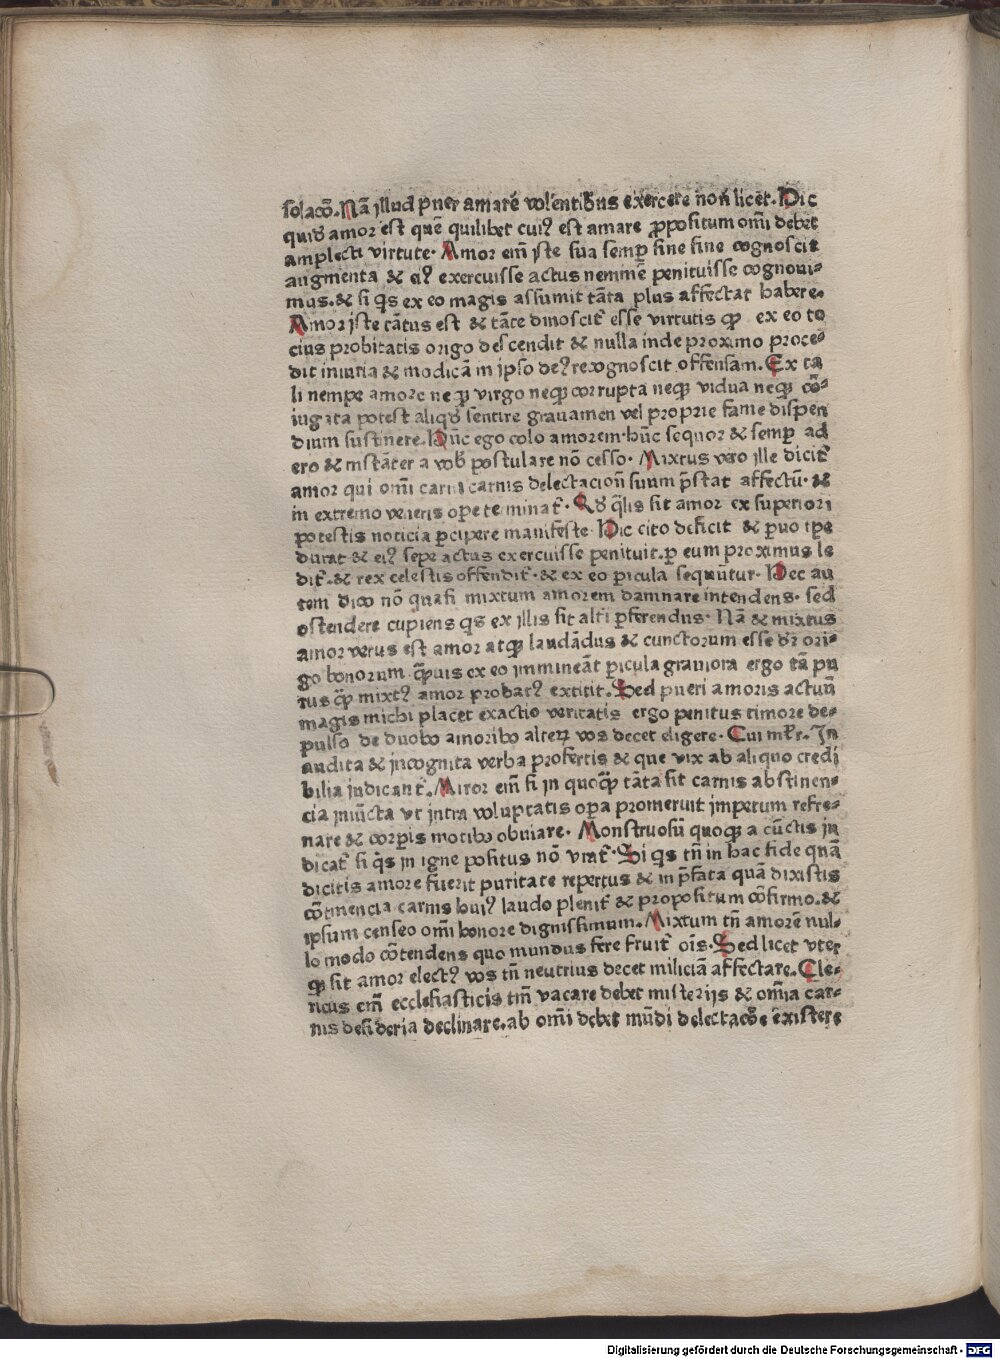 solacō. Nā illud puer amarē volentibus exercere non licet. Hic
quid̄ amor est quē quilibet cui⁹ est amare ꝓpositum omī debet
amplecti virtute. Amor em̄ iste sua semp̄ sine fine cognoscit
augmenta & ei⁹ exercuisse actus neminē penituisse cognoui-
mus. & si q̄s ex eo magis assumit tāta plus affectat habere.
Amor iste tātus est & tāte dinoscit᷑ esse virtutis ꝙ ex eo to
cius probitatis origo descendit & nulla inde proximo proce-
dit iniuria & modicā in ipso de⁹ recognoscit offensam. Ex ta
li nempe amore neqꝫ virgo neqꝫ corrupta neqꝫ vidua neqꝫ cō-
iugata potest aliqd̄ sentire grauamen vel proprie fame dispen
dium sustinere. Hūc ego colo amorem. hūc sequor & semp̄ ad
oro & instāter a vob̄ postulare nō cesso. Mixtus vero ille dicit᷑
amor qui omī carni carnis delectacioni suum p̄stat affectū. &
in extremo veneris ope terminat᷑. Qd̄ q̄lis sit amor ex superiori
potestis noticia ꝑcipere manifeste. Hic cito deficit & ꝑuo tpe
durat & ei⁹ sepe actus exercuisse penituit. ꝑ eum proximus le
dit᷑. & rex celestis offendit᷑. & ex eo ꝑicula sequūtur. Hec au
tem dico nō quasi mixtum amorem damnare intendens. sed
ostendere cupiens qs ex illis sit alti ꝑferendus. Nā & mixtus
amor verus est amor atqꝫ laudādus & cunctorum esse dr̄ ori-
go bonorum q̄ꝫuis ex eo immineāt ꝑicula grauiora ergo tā pu
rus q̄ꝫ mixt⁹ amor probat⁹ extitit. Sed pueri amoris actum
magis michi placet exactio veritatis ergo penitus timore de-
pulso de duobꝫ amoribꝫ alterꝝ vos decet eligere. Cui ml̄r. In
audita & incognita verba profertis & que vix ab aliquo credi
bilia iudicant᷑. Miror em̄ si in quoq̄ꝫ tāta sit carnis abstinen-
cia iniūcta vt intra voluptatis opa promeruit impetum refre-
nare & corpis motibꝫ obuiare. Monstruosū quoqꝫ a cūctis in
dicat᷑ si q̄s in igne positus nō vrat᷑. Si q̄s tn̄ in hac fide quā
dicitis amore fuerit puritate repertus & in p̄fata quā dixistis
cōtinencia carnis hui⁹ laudo plenit᷑ & propositum cōfirmo. &
ipsum censeo omī honore dignissimum. Mixtum tn̄ amorē nul-
lo modo cōtendens quo mundus fere fruit᷑ oīs. Sed licet vter
qꝫ sit amor elect⁹ vos tn̄ neutrius decet miliciā affectare. Cle-
ricus em̄ ecclesiasticis tm̄ vacare debet misterijs & omīa car-
nis desideria declinare. ab omī debet mūdi delectacōe existere
Digitalisierung gefördert durch die Deutsche Forschungsgemeinschaft - DFG